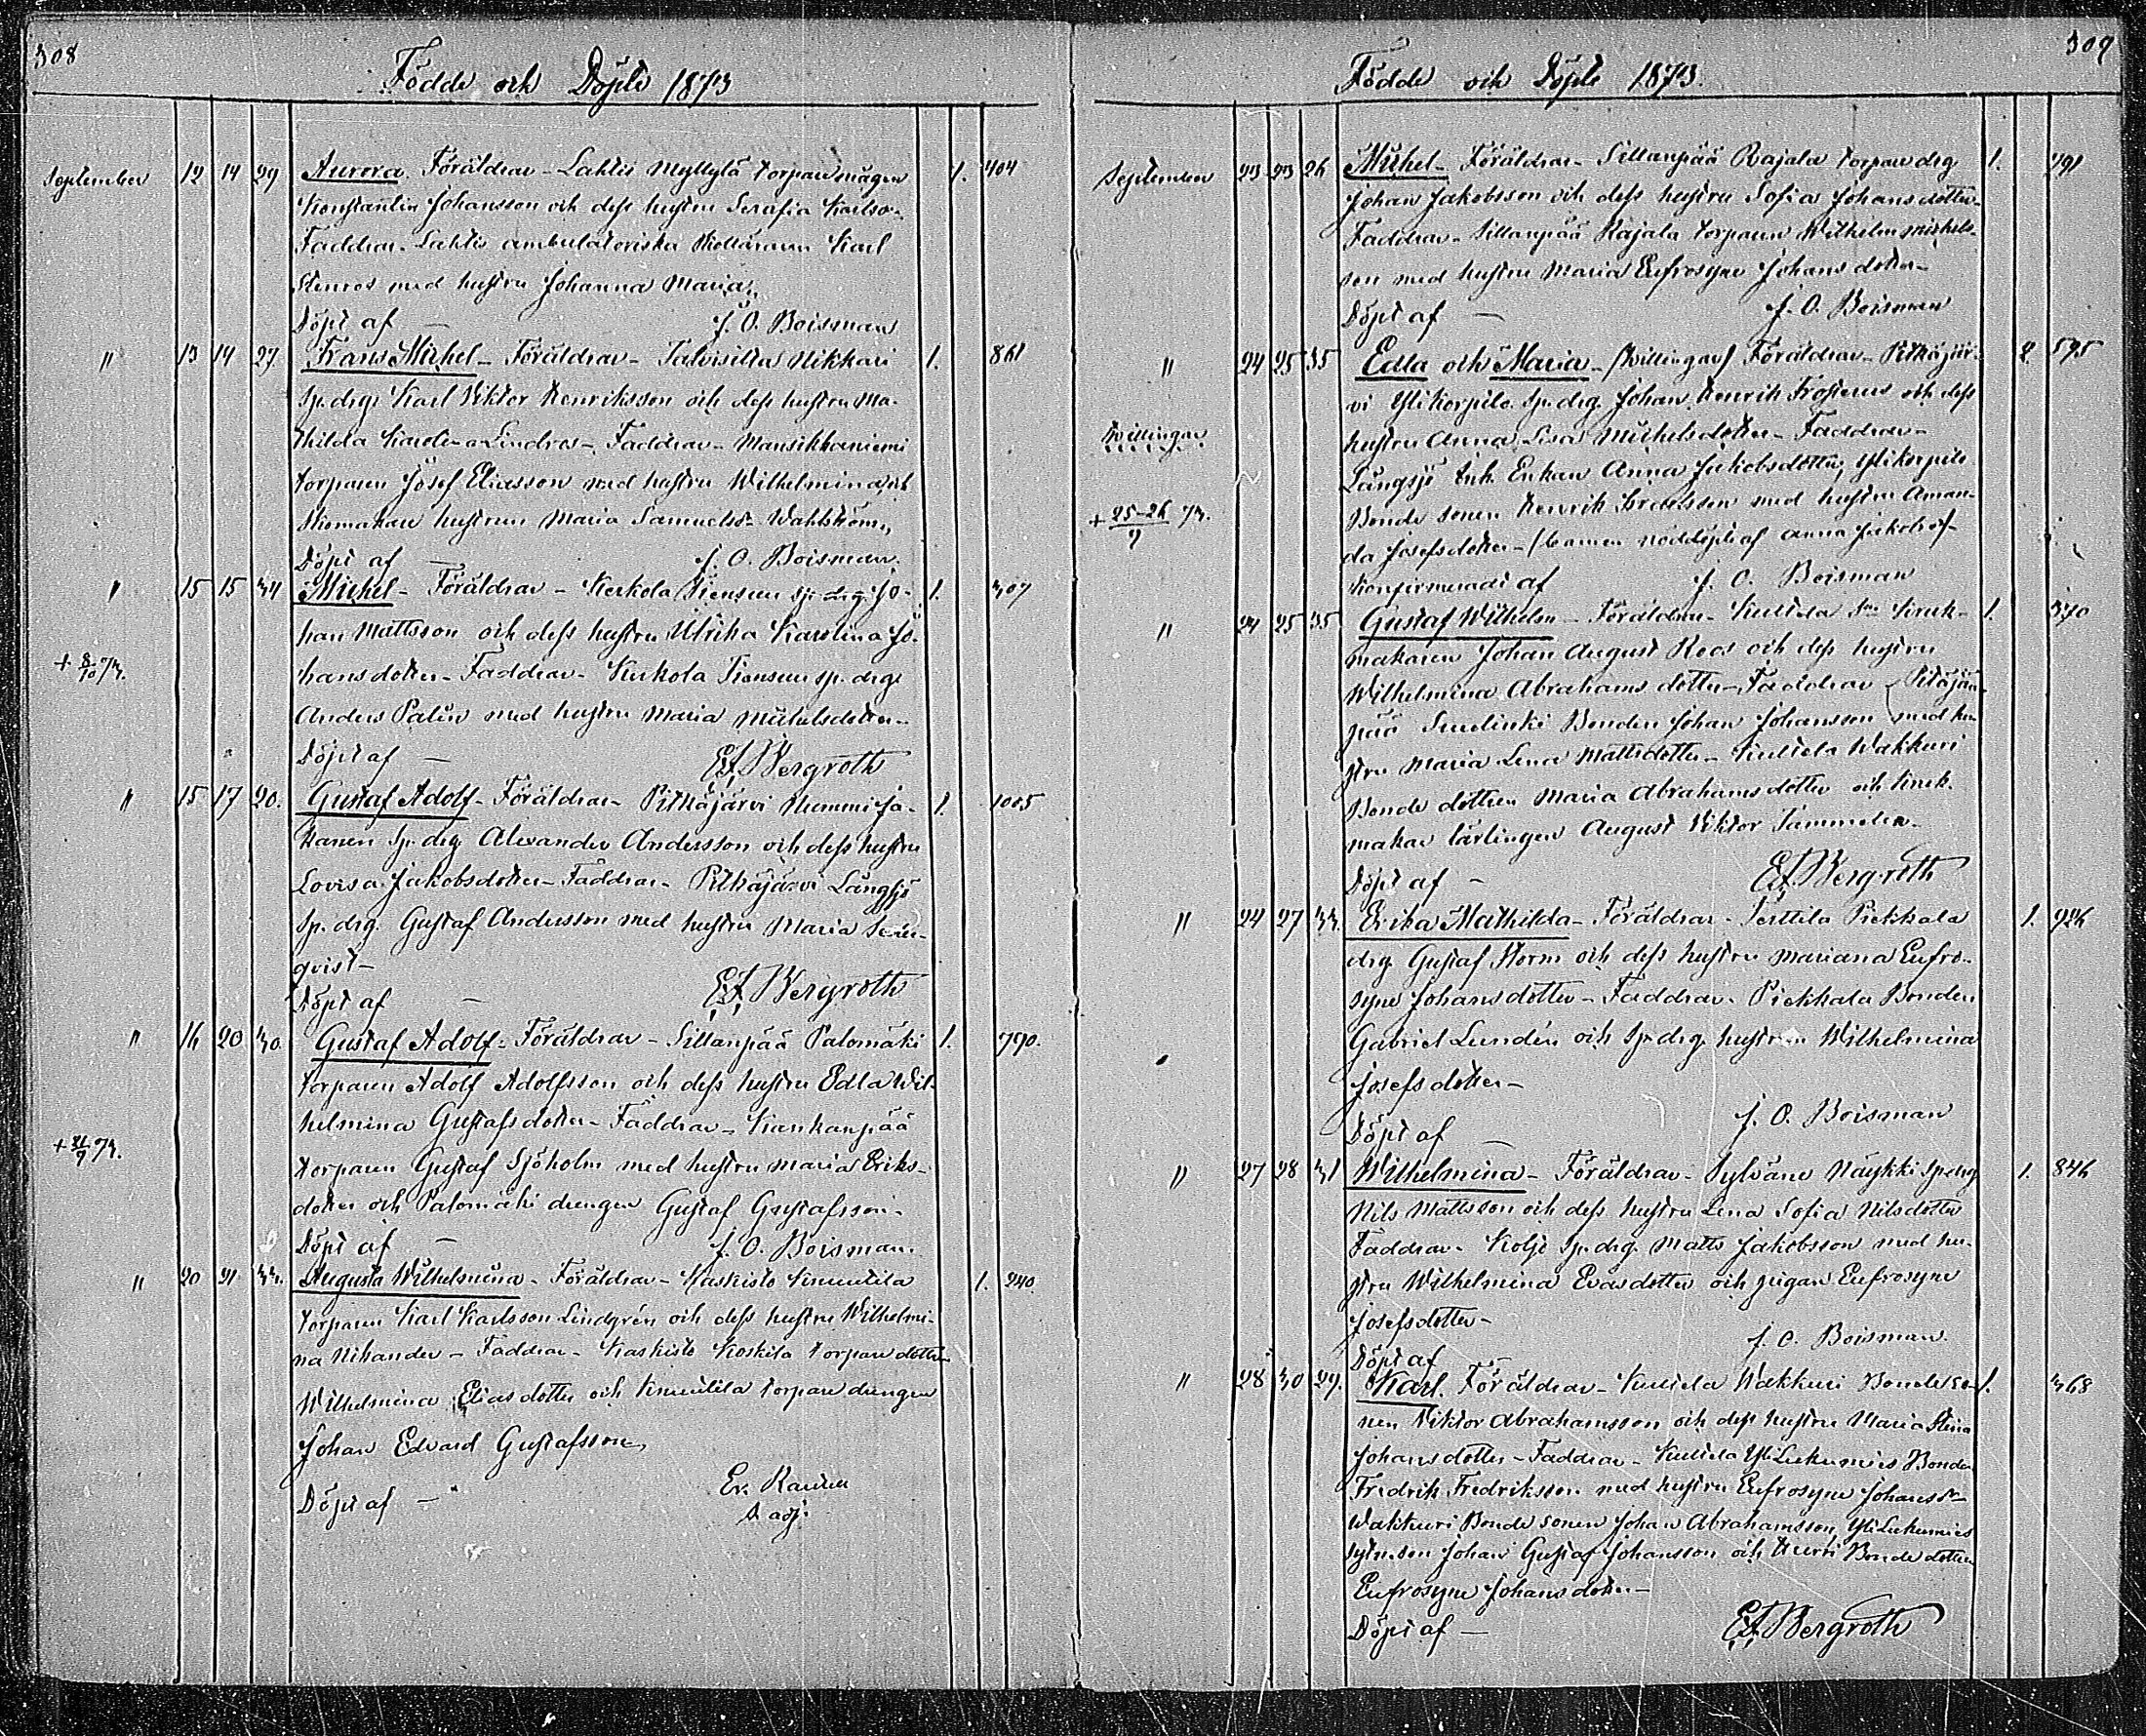 308
Födde och Döpte 1873
September 12 14 29 Aurora. Föräldrar - Lahtis Myllylä torpare mågen 1. 404
Konstantin Johansson och dess hustru Serafia Karlsd.
Faddrar. Lahtis ambulatoriska Karl
Stenros med hustru Johanna Maria.
Döpt af — J. O. Boisman
" 13 14 27. Frans Mihel - Föräldrar - Talvisilta Nikkari 1. 861
Sp. drg. Karl Viktor Henriksson och dess hustru Ma-
thilda Lindros - Faddrar - Mansikkaniemi
torparen Josef Eliasson med hustru Wilhelmina och
Skomakare hustrun Maria Samuelsd. Wahlström,
Döpt af — J. O. Boisman.
" 15 15 34 Mickel - Föräldrar - Kerkola sp. drg. Jo- 1. 307
han Mattsson och dess hustru Ulrika Karolina Jo-
+ 8/10 73. hansdotter - Faddrar - Kerkola sp. drg.
Anders Palin med hustru Maria Mickelsdotter -
Döpt af — E. F. Bergroth
" 15 17 20. Gustaf Adolf - Föräldrar - Pitkäjärvi Nummi Ja- 1. 1005
kanen Sp. drg. Alexander Andersson och dess hustru
Lovisa Jakobsdotter - Faddrar. Pitkäjärvi Långsjö
sp. drg. Gustaf Andersson med hustru Maria
qvist -
Döpt af — E. F. Bergroth
" 16 20 30. Gustaf Adolf - Föräldrar - Sillanpää Palomäki 1. 790.
torparen Adolf Adolfsson och dess hustru Edla Wil-
helmina Gustafsdotter - Faddrar - Kankanpää
+ 21/9 73. torparen Gustaf Sjöholm med hustru Maria Eriks-
dotter och Palomäki drengen Gustaf Gustafsson -
Döpt af — J. O. Boisman.
" 20 21 33. Augusta Wilhelmina - Föräldrar - Kaskisto 1. 240.
torparen Karl Karlsson Lindgrén och dess hustru Wilhelmi-
na Nikander - Faddrar - Kaskisto Koskela torpare dottren
Wilhelmina Eliasdotter och torpare drengen
Johan Edvard Gustafsson,
Döpt af — Ev.
adj.
309
Födde och Döpte 1873.
September 23 23 26 Mickel - Föräldrar - Sillanpää Rajala torpare drg 1. 791
Johan Jakobsson och dess hustru Sofia Johansdotter -
Faddrar - Sillanpää Rajala torparen Wilhelm Mickels-
son med hustru Maria Eufrosyne Johansdotter -
Döpt af — J. O. Boisman
" 24 25 35 Edla och Maria - (tvillingar) Föräldrar - Pitkäjär- 2. 595
vi Ylikorpilo Sp. drg. Johan Henrik Frosterus och dess
tvillingar hustru Anna Lisa Mickelsdotter - Faddrar -
Långsjö Enkan Anna Jakobsdotter, Ylikorpilo
+ 25-26/9 73. Bonde sonen Henrik med hustru Aman-
da Josefsdotter - (barnen nöddöpte af Anna Jakobsd.)
Konfirmerade af J. O. Boisman
" 24 25 35 Gustaf Wilhelm - Föräldrar - Kuttila 1. 370
makaren Johan August Roos och dess hustru
Wilhelmina Abrahams dotter - Faddrar
pää Bonden Johan Johansson med hu-
stru Maria Lena Mattsdotter - Wakkuri
Bonde dottren Maria Abrahamsdotter och
makar lärlingen August Viktor Tammelin -
Döpt af — E. F. Bergroth
" 24 27 33. Erika Mathilda - Föräldrar - Terttilä Piekkala 1. 926
drg. Gustaf Storm och dess hustru Mariana Eufro-
syne Johansdotter - Faddrar - Piekkala Bonden
Gabriel Lundén och Sp. drg. hustrun Wilhelmina
Josefsdotter -
Döpt af — J. O. Boisman
" 27 28 31 Wilhelmina - Föräldrar - Sylvänä Näykki Sp. drg 1. 846
Nils Mattsson och dess hustru Lena Sofia Nilsdotter
Faddrar. Koljo Sp. drg. Matts Jakobsson med hu-
stru Wilhelmina Evasdotter och pigan Eufrosyne
Josefsdotter -
Döpt af — J. O. Boisman.
" 28 30 29. Karl. Föräldrar - Wakkuri Bonde so- 1. 368
nen Viktor Abrahamsson och dess hustru Maria Stina
Johansdotter - Faddrar - Bonden
Fredrik Fredriksson med hustru Eufrosyne Johansd. -
Wakkuri Bonde sonen Johan Abrahamsson,
Johan Gustaf Johansson och Bonde dottren
Eufrosyne Johansdotter -
Döpt af — E. F. Bergroth